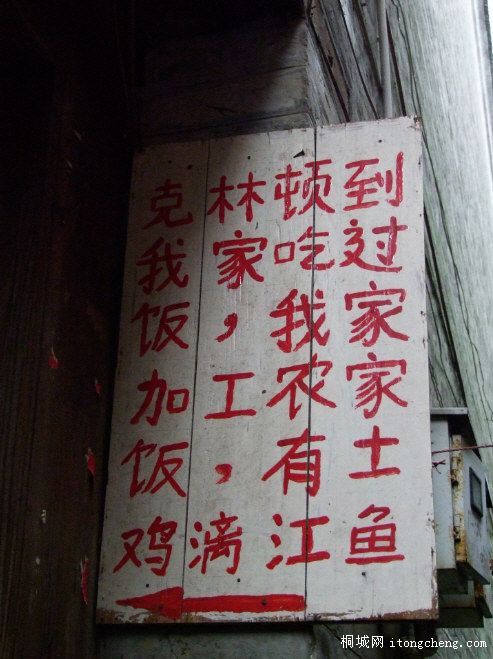 克林顿到
我家吃过
饭，我家
加工农家
饭，有土
鸡漓江鱼
桐城网 itongcheng.com